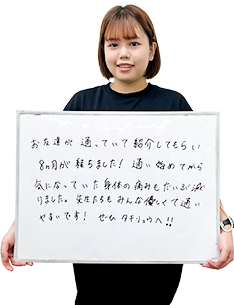 お友達が通っていて紹介してもらい
8ヶ月が経ちました！通い始めてから
気になっていた身体の痛みもだいぶ減
りました。先生たちもみんな優しくて通い
やすいです！ぜひタチリョウへ!!